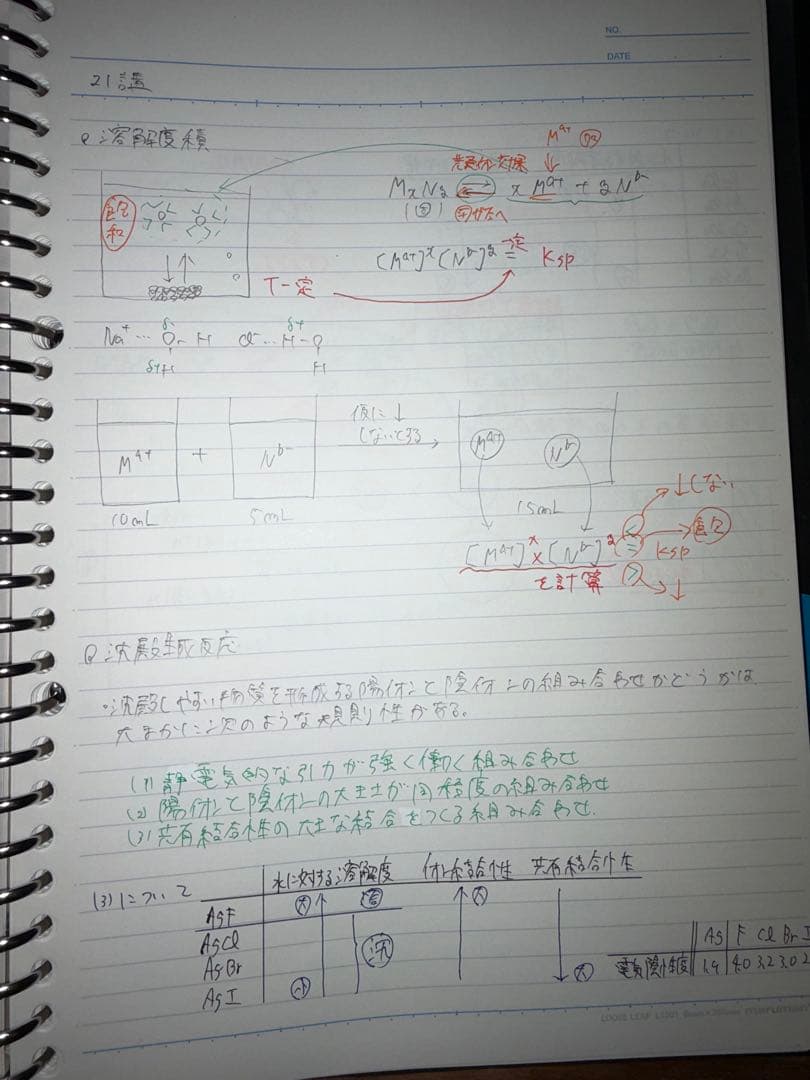 NO.
DATE
21講
溶解度積
M^a+ 加
共通イオン効果
MxNy ⇄ x M^a+ + y N^b-
(固) 左へ
飽和
[M^a+]^x [N^b-]^y = 一定 Ksp
T一定
Na+ … O - H Cl- … H - O
δ- δ+
δ+H H
M^a+ + N^b- 仮に↓しないとする → M^a+ N^b-
10mL 5mL 15mL
↓しない
[M^a+]^x × [N^b-]^y < = > Ksp
飽和
を計算 ↓
沈殿生成反応
・沈殿しやすい物質を形成する陽イオンと陰イオンの組み合わせかどうかは
大まかに次のような規則性がある。
(1) 静電気的な引力が強く働く組み合わせ
(2) 陽イオンと陰イオンの大きさが同程度の組み合わせ
(3) 共有結合性の大きな結合をつくる組み合わせ.
(3)について 水に対する溶解度 イオン結合性 共有結合性
AgF 大 溶 大
AgCl 沈
AgBr
AgI 小 大
Ag F Cl Br I
電気陰性度 1.9 4.0 3.2 3.0 2